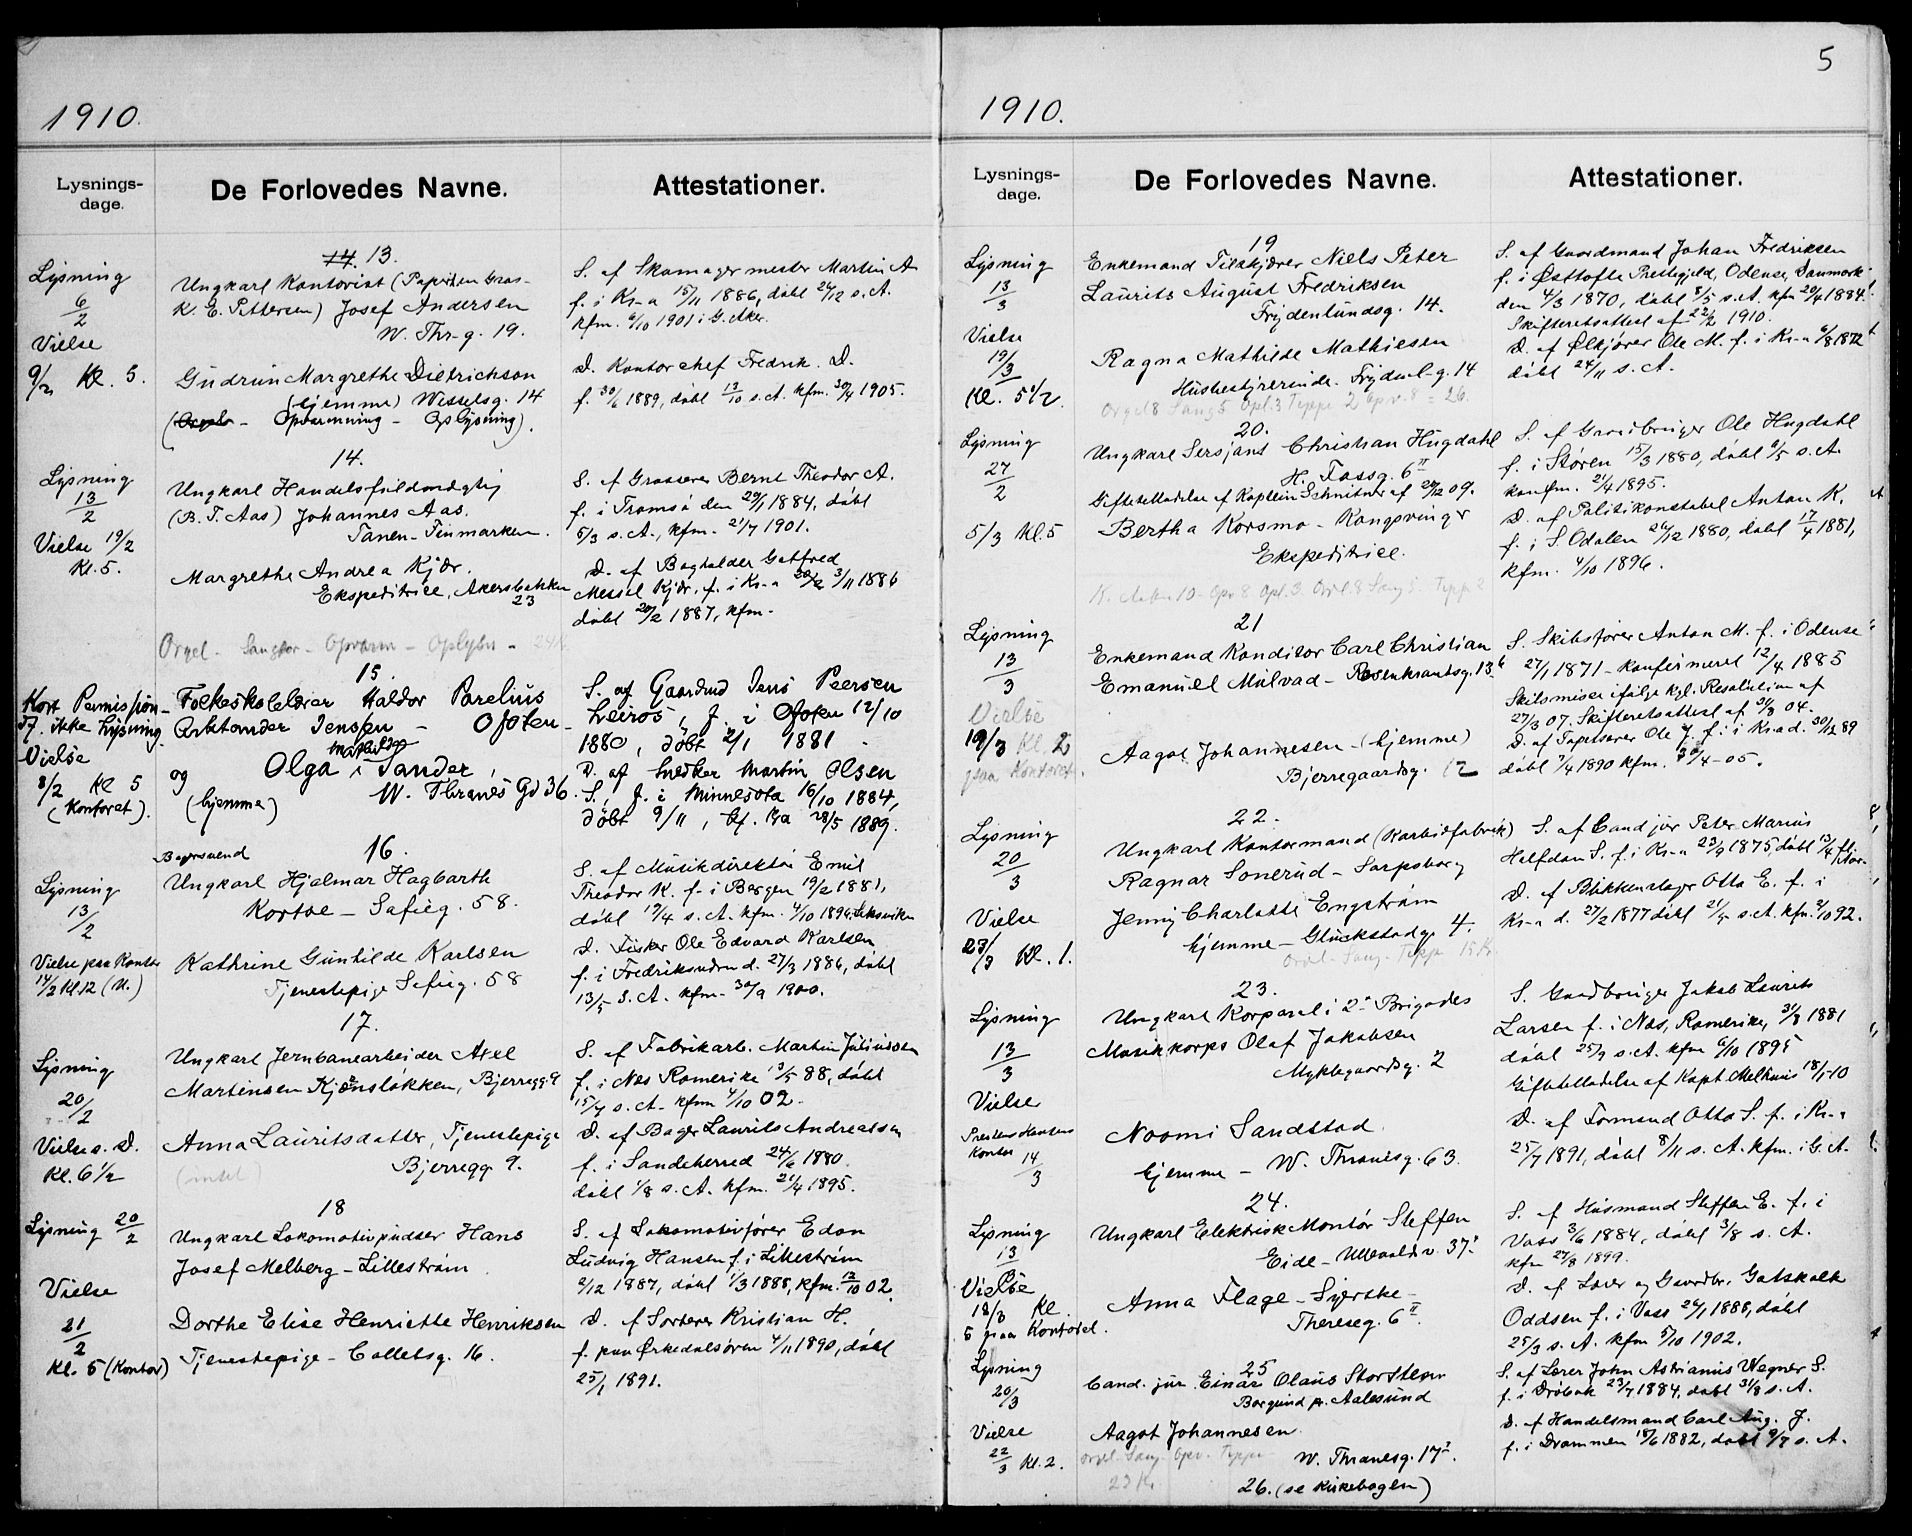 1910.
Lysnings-
dage.
De Forlovedes Navne.
Attestationer.
13.
Lysning
6/2
Vielse
9/2 Kl. 5.
Ungkarl Kontorist (Papirhen Gros-
K. E. Pettersen) Josef Andersen
W. Thr-g. 19.
Gudrun Margrethe Dietrichson
(hjemme) Wesselsg. 14
(Orgel - Opvarmning - Oplysning).
S. af Skomagermester Martin A
f. i Kr-a 15/11 1886, døbt 26/12 s. A.
kfm. 6/10 1901 i G. Aker.
D. Kontorchef Fredrik. D.
f. 30/6 1889, døbt 13/10 s. A. kfm. 30/4 1905.
14.
Lysning
13/2
Vielse 19/2
Kl. 5.
Ungkarl Handelsfuldmægtig
(B. T. Aas) Johannes Aas.
Tanen - Finmarken.
Margrethe Andrea Kjær.
Ekspeditrice, Akersbakken
23
S. af Grosserer Bernt Theodor A.
f. i Tromsø den 29/1 1884, døbt
5/3 s. A., kfm. 21/7 1901.
D. af Bogholder Gotfred
Messel Kjær, f. i Kr-a 3/11 1886
døbt 20/2 1887, kfm-
Orgel - Sangkor - Opvarm - Oplysn - 24 K.
15.
Kort Permission
df. ikke Lysning.
Vielse
8/2 Kl 5
(Kontoret).
Folkeskolelærer Haldor Parelius
Arbtander Jenssen - Ofoten
og
Olga Mathilde Sander,
(hjemme) W. Thranes Gd 36.
S. af Gaardbrd Jens Peersen
Leiros, f. i Ofoten 12/10
1880, døbt 2/1 1881.
D. af Snedker Martin Olsen
S., f. i Minnesota 16/10 1884,
døbt 9/11, kf. Kra 28/5 1889.
16.
Lysning
13/2
Vielse paa Kontor
14/2 Kl. 12 (U.)
Bagersvend
Ungkarl Hjalmar Hagbarth
Kortoe - Sofieg. 58.
Kathrine Gunhilde Karlsen
Tjenestepige Sofieg. 58
S. af Musikdirektør Emil
Theodor K. f. i Bergen 19/2 1881,
døbt 17/4 s. A. kfm. 4/10 1896
D. Fisker Ole Edvard Karlsen
f. i Fredriksværn d. 27/3 1886, døbt
13/5 s. A. kfm- 30/9 1900.
17.
Lysning
20/2
Vielse s. D.
Kl. 6 1/2
Ungkarl Jernbanearbeider Axel
Martinsen Kjønsløkken, Bjerregg. 9
Anna Lauritsdatter, Tjenestepige
(intet) Bjerregg 9.
S. af Fabrikarb. Martin Juliussen
f. i Nes Romerike 13/5 88, døbt
15/7 s. A. kfm 4/10 02.
D. af Bager Laurits Andreassen
f. i Sandeherred 24/6 1880.
døbt 1/8 s. A. kfm. 21/4 1895.
18
Lysning 20/2
Vielse
21/2
Kl. 5 (Kontor)
Ungkarl Lokomotivpudser Hans
Josef Melberg - Lillestrøm
Dorthe Elise Henriette Henriksen
Tjenestepige - Colletsg. 16.
S. af Lokomotivfører Edon
Ludvig Hansen f. i Lillestrøm
2/12 1887, døbt 1/3 1888, kfm. 12/10 02.
D. af Sorterer Kristian H.
f. paa Ørkedalsøren 4/11 1890, døbt
25/1 1891.
5
1910.
Lysnings-
dage.
De Forlovedes Navne.
Attestationer.
19
Lysning
13/3
Vielse
19/3
Kl. 5 1/2.
Enkemand Tilskjærer Niels Peter
Laurits August Fredriksen
Frydenlundsg. 14.
Ragna Mathilde Mathiesen
Husbestyrerinde. Frydenl-g. 14
Orgel 8 Sang 5 Opl. 3 Teppe 2 Opv. 8 = 26.
S. af Gaardmand Johan Fredriksen
f. i Østtofte Prestegjeld, Odense, Danmark
den 4/3 1870, døbt 8/5 s. A. kfm 20/4 1884.
Skifteretsattest af 22/2 1910.
D. af Ølkjører Ole M. f. i Kr-a 6/8 1872
døbt 24/11 s. A.
20.
Lysning
27/2
5/3 Kl. 5
Ungkarl Sersjant Christian Hugdahl
H. Fossg. 6 II
Giftetilladelse af Kaptein Schnitler af 29/12 09.
Bertha Korsmo - Kongsvinger
Ekspeditrice.
S. af Gaardbruger Ole Hugdahl
f. i Støren 15/3 1880, døbt 6/5 s. A.
konfm. 21/4 1895.
D. af Politikonstabel Anton K.
f. i S. Odalen 26/12 1880, døbt 17/4 1881,
kfm. 4/10 1896.
21
Lysning
13/3
Vielse
19/3 Kl. 2
paa Kontoret.
Enkemand Konditor Carl Christian
Emanuel Mulvad - Rosenkrantsg. 13 b
Aagot Johannesen - (hjemme)
Bjerregaardsg. 12
S. Skibsfører Anton M. f. i Odense
27/1 1871 - konfirmeret 12/4 1885
Skilsmisse ifølge kgl. Resolution af
27/3 07. Skifteretsattest af 31/3 04.
D. af Tapetserer Ole J. f. i Kr-a d. 30/12 89
døbt 7/4 1890 kfm. 30/4-05.
22.
Lysning
20/3
Vielse
23/3 Kl. 1.
Ungkarl Kontormand (Karbidfabrik)
Ragnar Sonerud - Sarpsborg
Jenny Charlotte Engstrøm
hjemme - Glückstadg. 4.
Orgel - Sang - Teppe 15 Kr.
S. af Cand jur Peter Marius
Halfdan S. f. i Kr-a 23/9 1875, døbt 13/4
D. af Blikkenslager Otto E. f. i
Kr-a d. 27/2 1877 døbt 21/5 s. A. kfm. 2/10 92.
23.
Lysning
13/3
Vielse
Prestens Kontor
14/3
Ungkarl Korporal i 2. Brigades
Musikkorps Olaf Jakobsen
Myklegaardsg. 2
Noomi Sandstad
hjemme - W. Thranesg. 63.
S. Gaardbruger Jakob Laurits
Larsen f. i Nes, Romerike, 31/8 1881
døbt 25/9 s. A. kfm 6/10 1895
Giftetilladelse af Kapt Melhuus 18/1-10
D. af Formand Otto S. f. i Kr-a
25/7 1891, døbt 8/11 s. A. kfm. i G. A.
24.
Lysning
13
Vielse
18/3 Kl.
5 paa Kontoret.
Ungkarl Elektrisk Montør Steffen
Eide - Ullevaalsv. 37 I
Anna Flage - Syerske -
Thereseg. 6 II.
S. af Husmand Steffen E. f. i
Voss 3/6 1884, døbt 3/8 s. A.
kfm 27/8 1899.
D. af Lærer og Gaardbr. Gotskalk
Oddsen f. i Voss 26/1 1888, døbt
25/3 s. A. kfm 5/10 1902.
25
Lysning
20/3
Vielse
22/3 Kl. 2.
Cand. jur. Einar Olaus Storsteen
Borgund pr. Aalesund
Aagot Johannesen
Orgel Sang Opv. Teppe W. Thranesg. 17 I.
23 Kr.
S. af Lærer John Astrianus Wegner S.
f. i Drøbak 23/7 1884, døbt 31/8 s. A.
D. af Handelsmand Carl Aug. J.
f. i Drammen 18/6 1882, døbt 9/7 s. A.
26. (se kirkebogen)